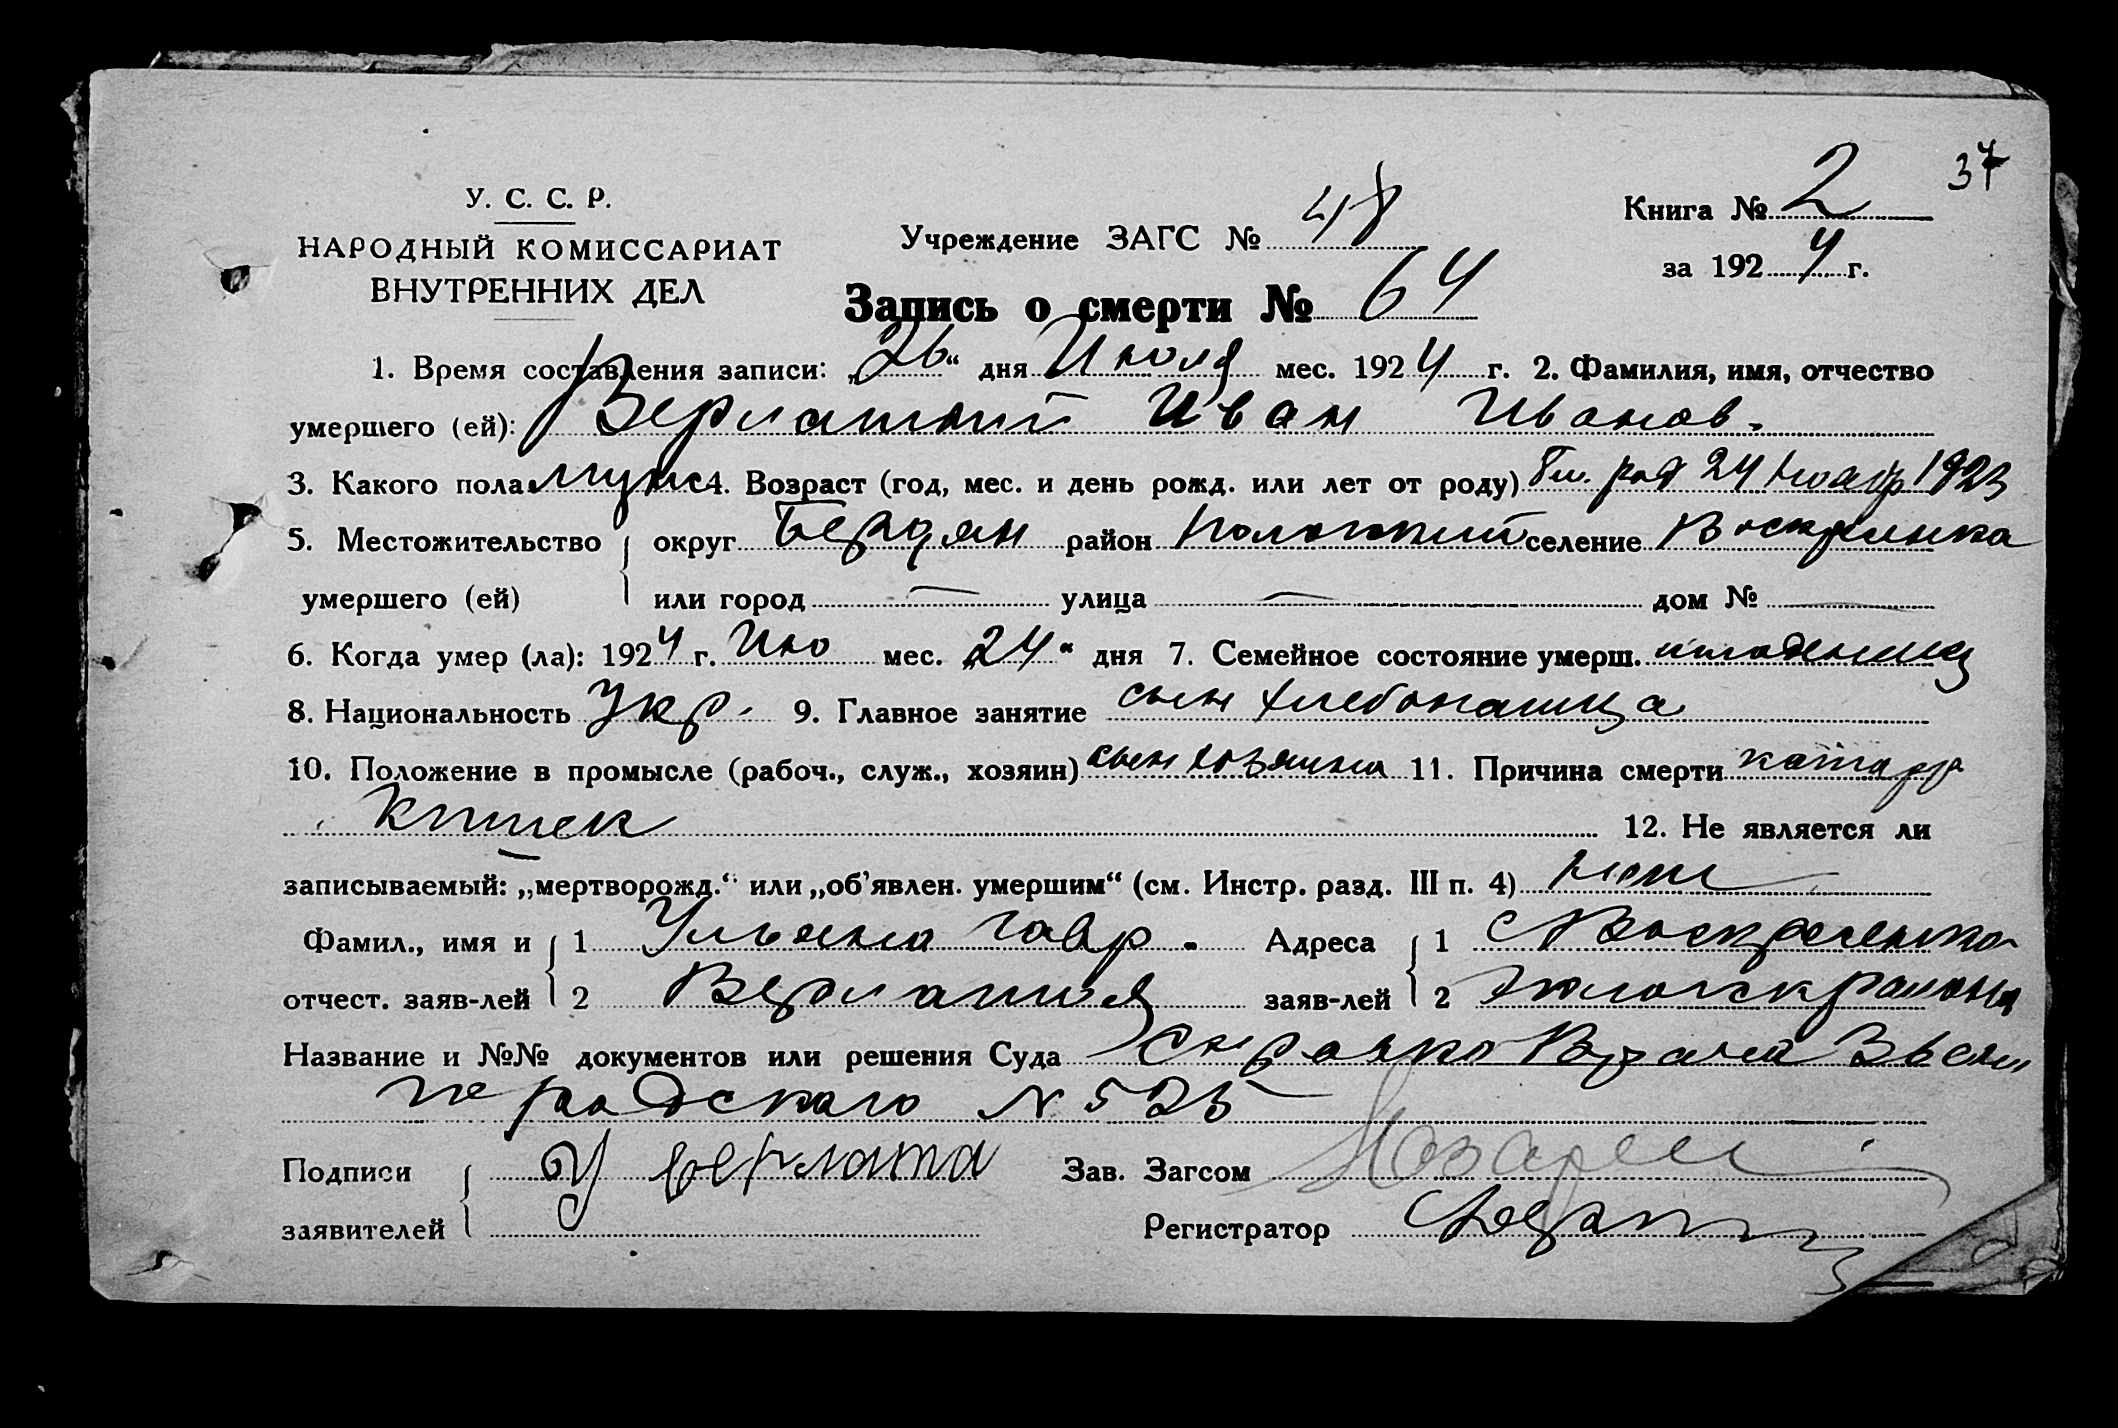 37
У. С. С. Р.
НАРОДНЫЙ КОМИССАРИАТ
ВНУТРЕННИХ ДЕЛ
Учреждение ЗАГС № 48
Книга № 2
за 1924 г.
Запись о смерти № 64
1. Время составления записи: „26“ дня Июля мес. 1924 г. 2. Фамилия, имя, отчество
умершего (ей): Верлатый Иван Иванов.
3. Какого пола муж 4. Возраст (год, мес. и день рожд. или лет от роду) 8 м. род 24 Ноябр 1923
5. Местожительство округ Бердян район Пологский селение Воскресенка
умершего (ей) или город — улица — дом № —
6. Когда умер (ла): 1924 г. Июл мес. „24“ дня 7. Семейное состояние умерш. младенец
8. Национальность Укр. 9. Главное занятие сын хлебопашца
10. Положение в промысле (рабоч., служ., хозяин) сын хозяина 11. Причина смерти катарр
кишек 12. Не является ли
записываемый: „мертворожд.“ или „об’явлен. умершим“ (см. Инстр. разд. III п. 4) нет
Фамил., имя и 1 Ульяна Гавр. Адреса 1 с Воскресенка
отчест. заяв-лей 2 Верлатая заяв-лей 2 Пологск района
Название и №№ документов или решения Суда Справка Врача
№ 525
Подписи У верлата Зав. Загсом
заявителей Регистратор